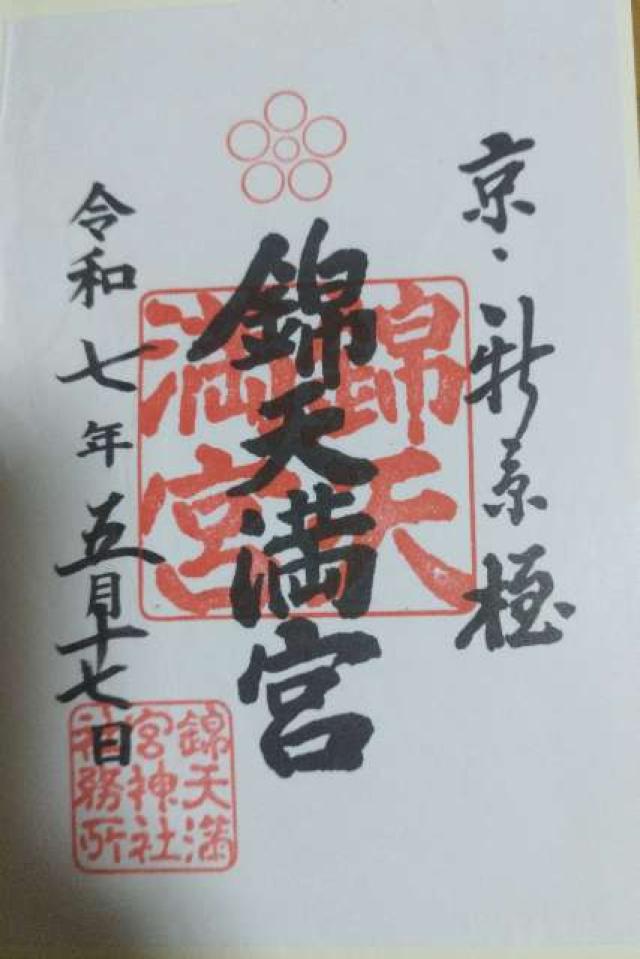 京、新京極
錦天満宮
錦天
満宮
令和七年五月十七日
錦天満
宮神社
社務所